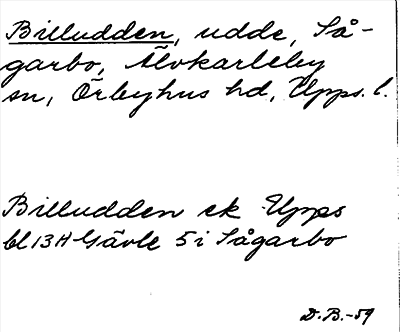 Billudden, udde, Så-
garbo, Älvkarleby
sn, Örbyhus hd, Upps. l.
Billudden ek Upps
bl 13H Gävle 5 i Sågarbo
D.B.-59